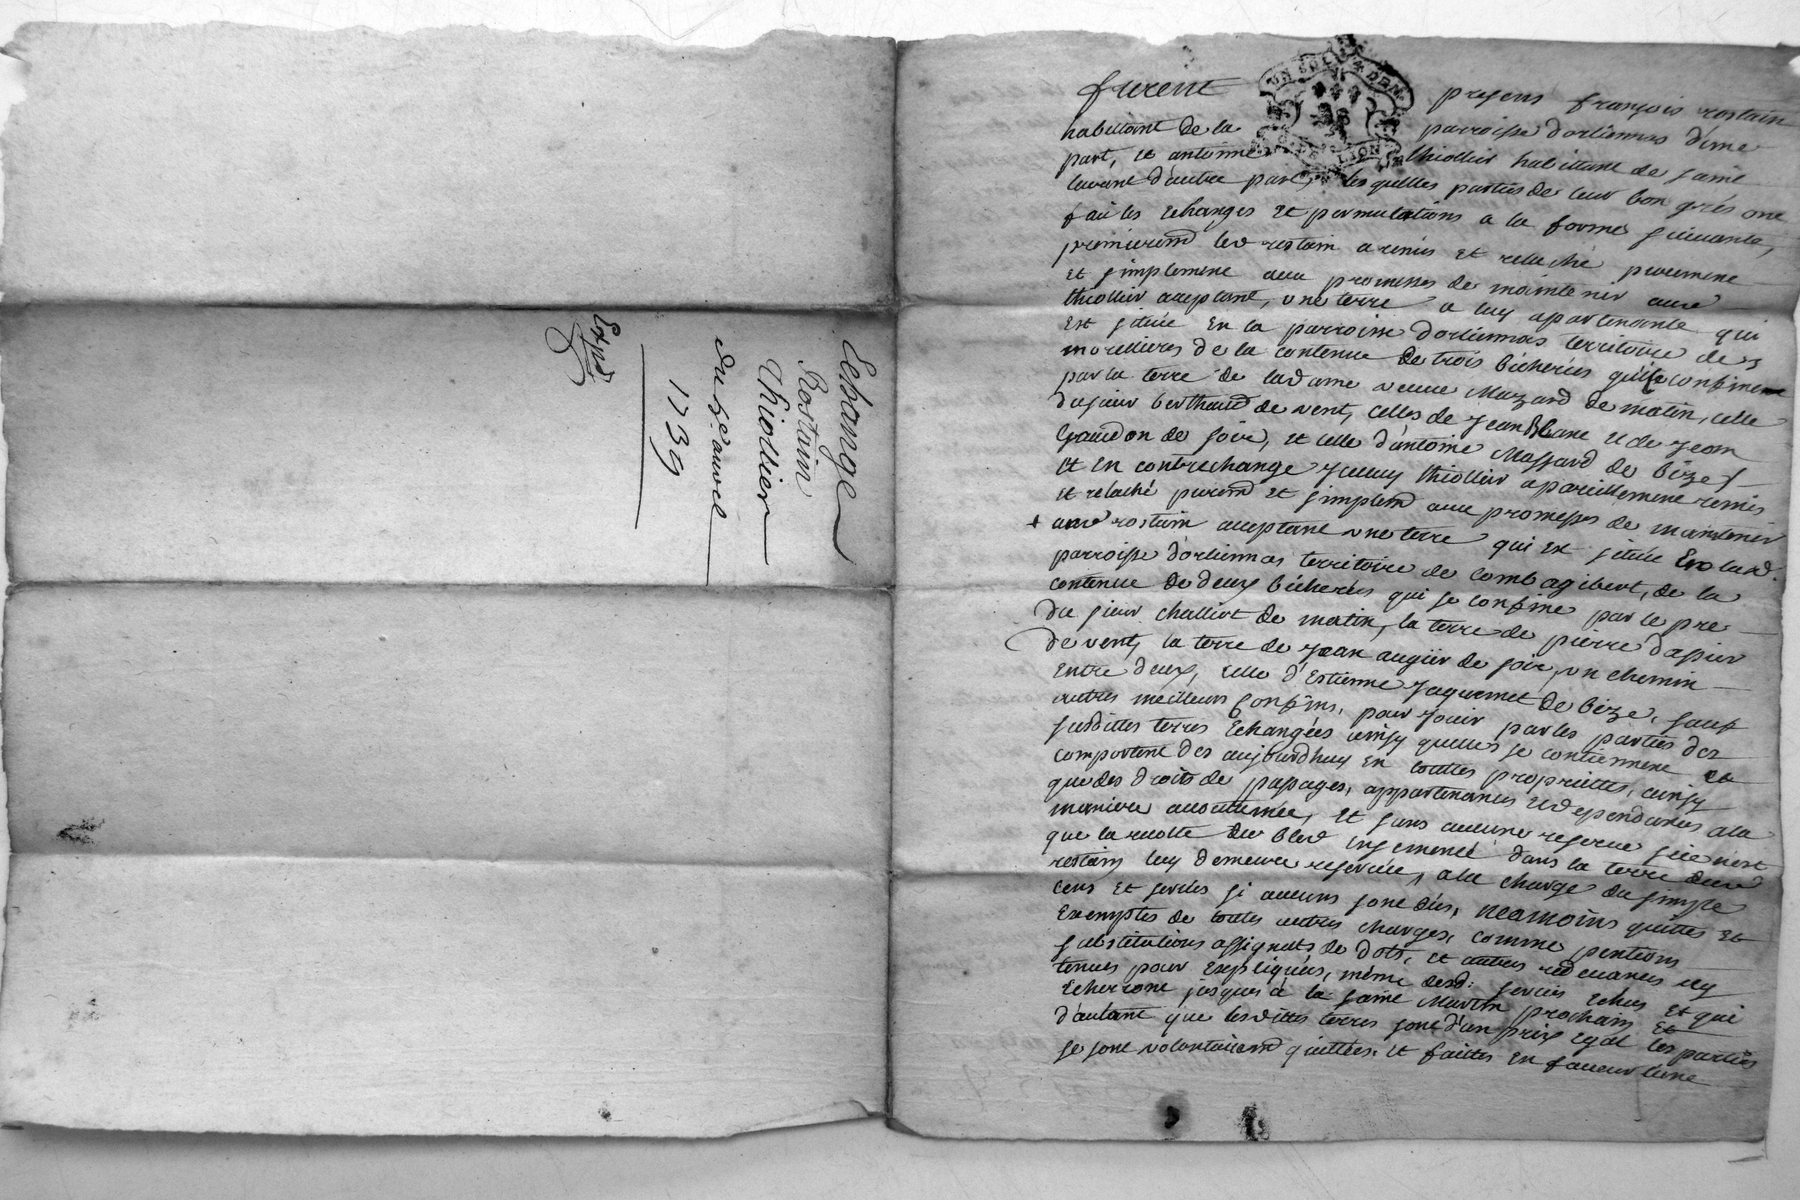 Echange
Rostain
Thiollier
du 8e. avril
1739
Expd
UN SOL 4 DEN.
G. DE LION
furent presens françois rostain
habittant de la parroisse dorliennas d'une
part, et antoine thiollier habittant de saint
laurant d'autre part, lesquelles parties de leur bon grés ont
fait les echanges et permutations a la forme suivante,
premieremt led rostain a remis et relaché purement
et simplement avec promesses de maintenir aud
thiollier acceptant, une terre a luy apartenante qui
est situee en la parroisse dorliennas territoire des
morellieres de la contenue de trois bicherées qui se confine
par la terre de ladame veuve Mazard de matin, celle
du sieur berthaud de vent, celles de Jean Blanc et de Jean
Gaudon de soir, et celle d'antoine Massard de bize /
et en contrechange iceluy thiollier apareillement remis
et relaché puremt et simplemt avec promesses de maintenir
aud rostain acceptant une terre qui est situee en lad.
parroisse d'orliennas territoire de combagibert, de la
contenue de deux bicherées qui se confine par le pre
du sieur challiot de matin, la terre de pierre dapier
de vent, la terre de Jean augier de soir, un chemin
entre deux, celle d'Estienne Jaquemet de bize, sauf
autres meilleurs confins, pour jouir par les parties des
susdittes terres echangées ainsy quelles se contiennent et
comportent des aujourdhuy en touttes proprietés, ainsy
que des droits de passages, appartenances et dependances a la
maniere accoutumée, et sans aucune reserve si ce n'est
que la recolte du bled ensemencé dans la terre dud
rostain luy demeure reservée, a la charge du simple
cens et servis si aucuns sont dus, neamoins quittes et
exemptes de touttes autres charges, comme pentions
substitutions assignats de dots, et autres redevances icy
tenues pour expliquées, même desd: servis echus et qui
echerront jusques à la saint Martin prochain et
d'autant que lesdittes terres sont d'un prix egal les parties
se sont volontairemt quittées et faittes en faveur lune